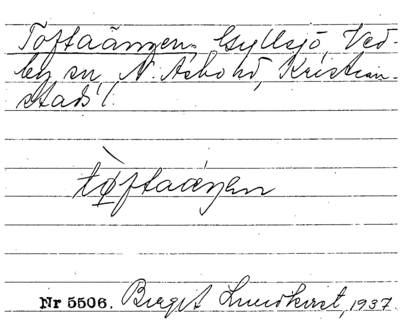 Toftaängen, Gyllsjö, Ved-
by sn, N. Åsbo hd, Kristian-
stads l.
tòftaáŋen
Nr 5506. Birgit Lundkvist, 1937